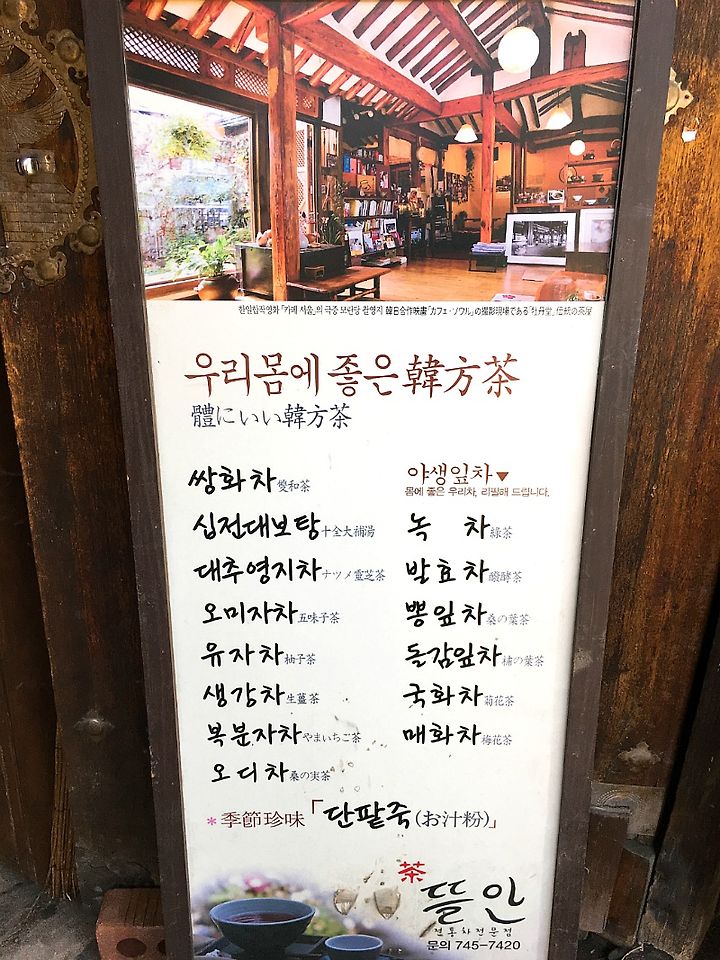 한일합작영화「카페 서울」의 극중 모란당 촬영지 韓日合作映畫「カフェ・ソウル」の撮影現場である「牡丹堂」伝統の茶屋
우리몸에 좋은 韓方茶
體にいい韓方茶
쌍화차 雙和茶
십전대보탕 十全大補湯
대추영지차 ナツメ靈芝茶
오미자차 五味子茶
유자차 柚子茶
생강차 生薑茶
복분자차 やまいちご茶
오디차 桑の実茶
야생잎차▼
몸에 좋은 우리차, 리필해 드립니다.
녹 차 緑茶
발효차 醱酵茶
뽕잎차 桑の葉茶
돌감잎차 の葉茶
국화차 菊花茶
매화차 梅花茶
*季節珍味「단팥죽(お汁粉)」
茶
뜰안
전통차전문점
문의 745-7420